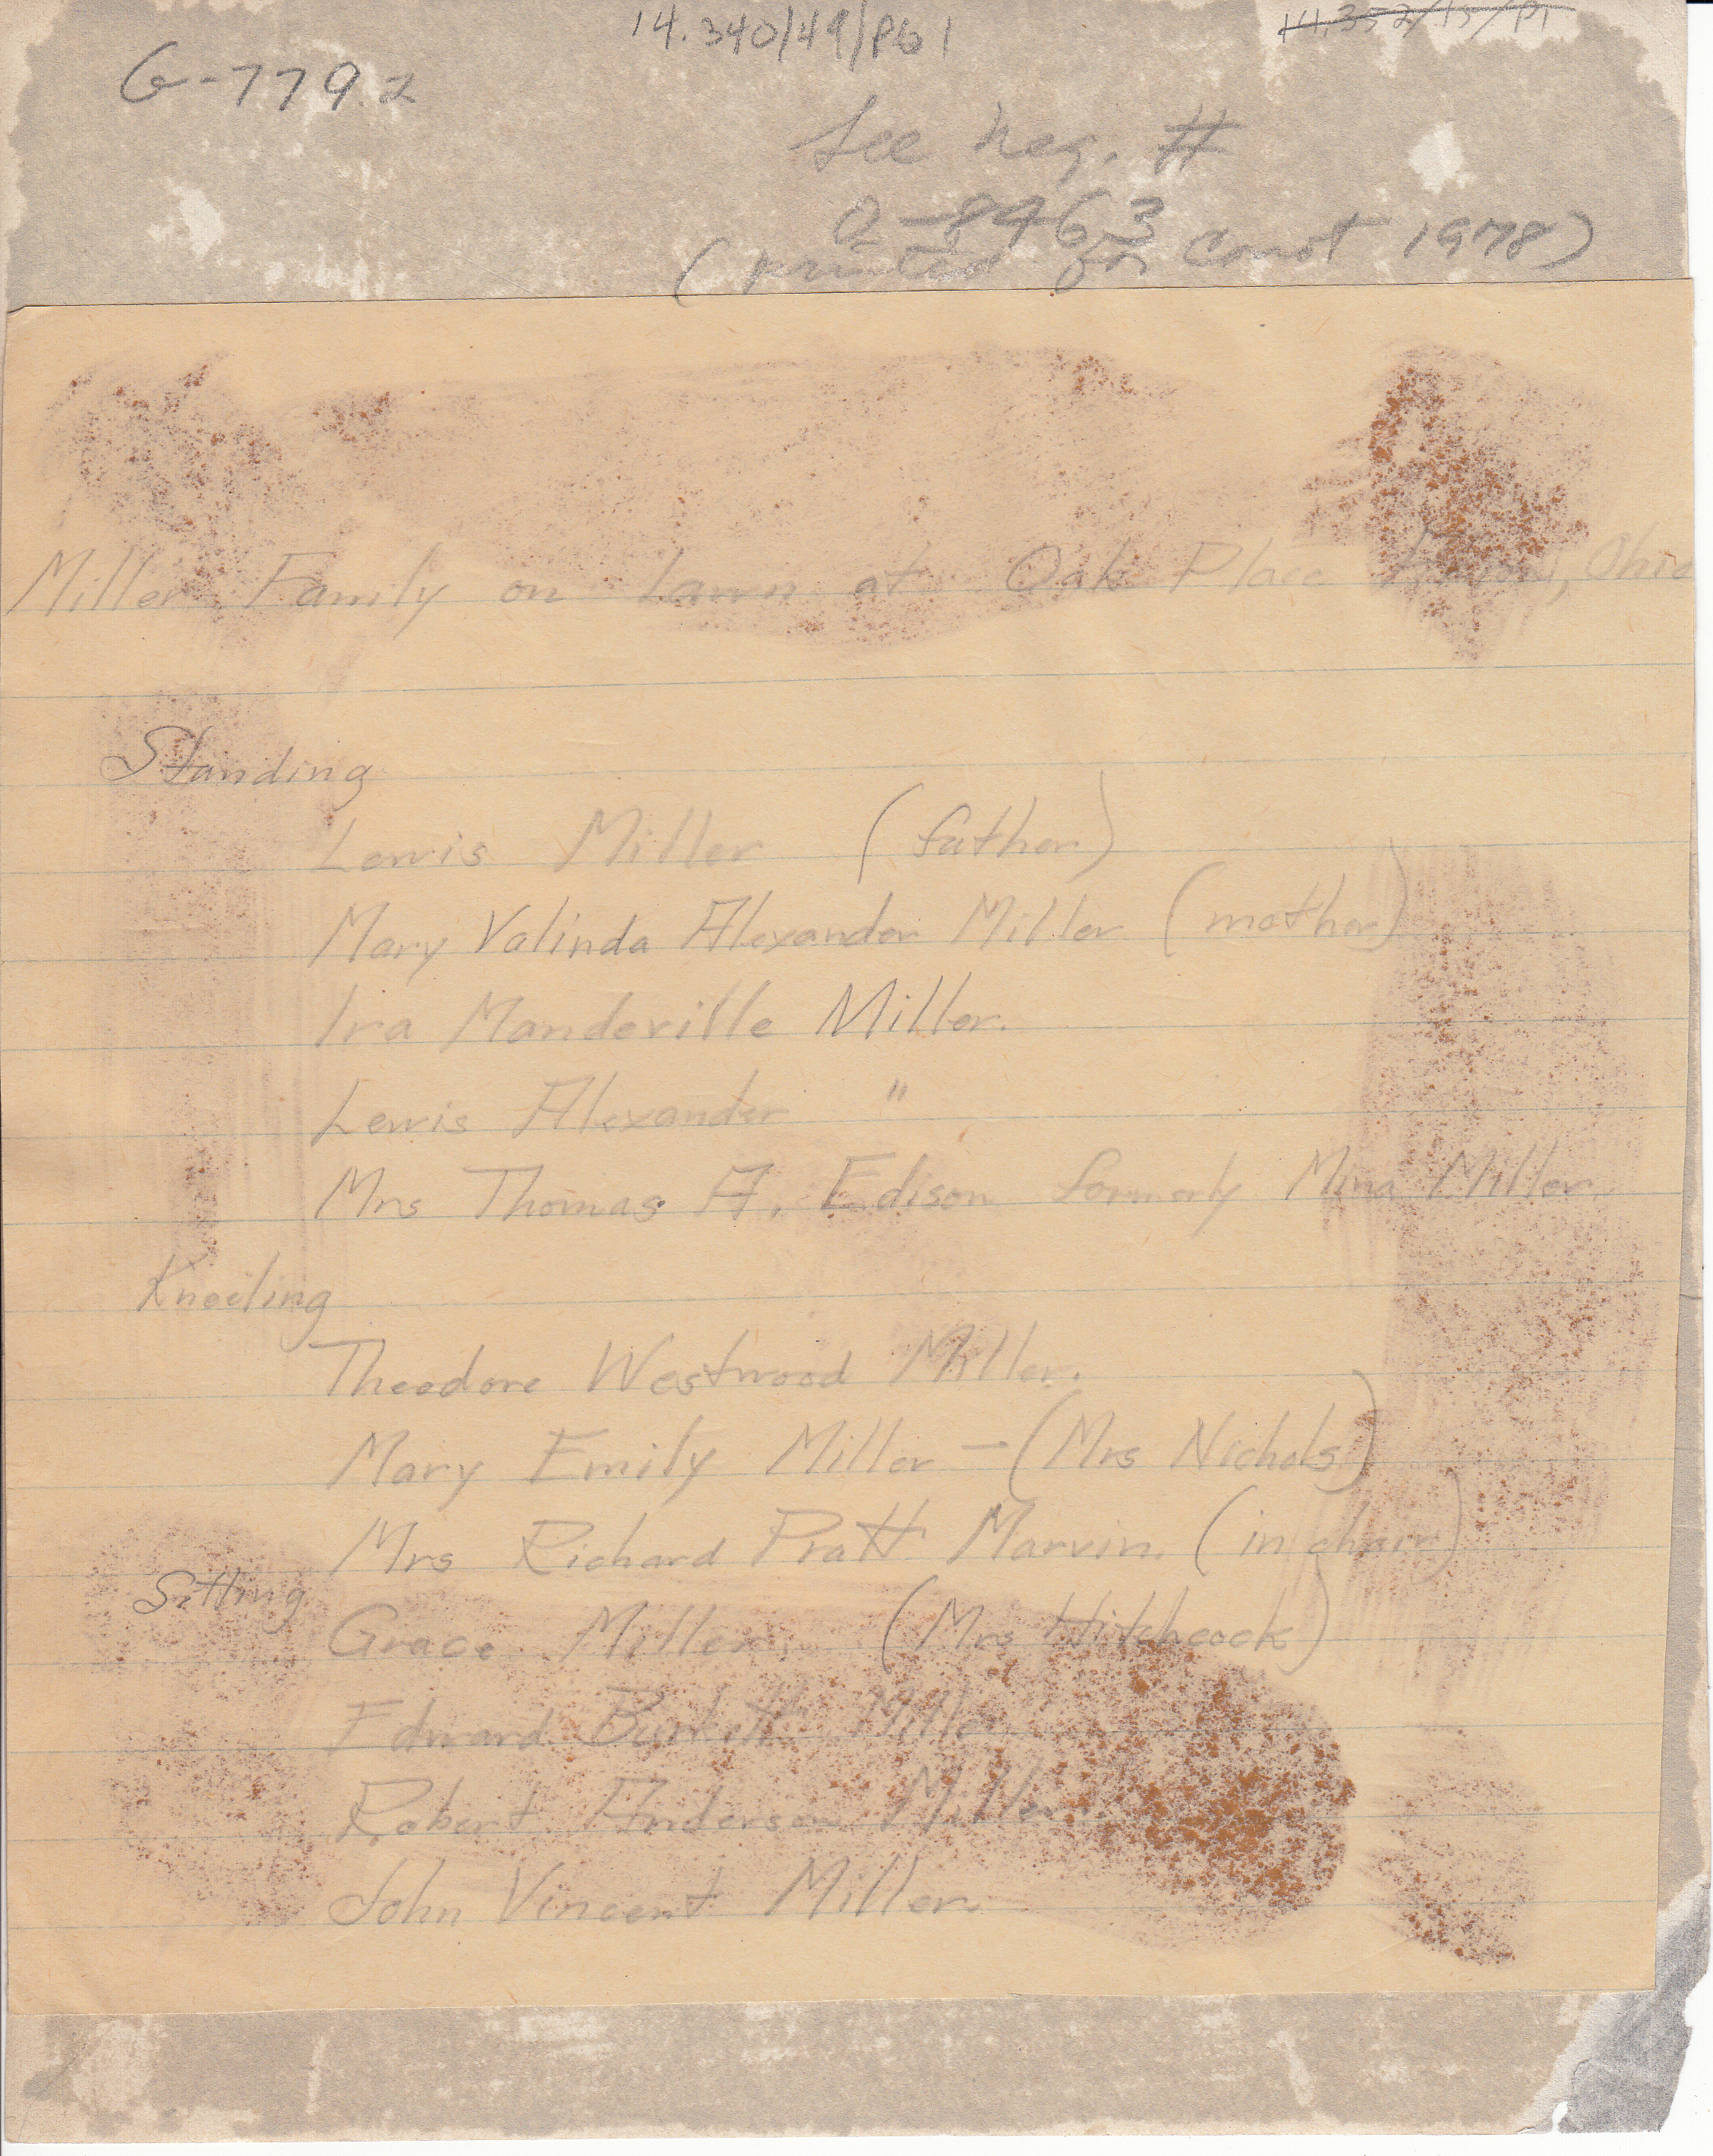 14.340/49/Pb 1
14.352/15/P1
G-779.2
See neg. #
(printed for Conot 1978)
Miller Family on Lawn at Oak Place Akron, Ohio
Standing
Lewis Miller (father)
Mary Valinda Alexander Miller (mother)
Ira Mandeville Miller.
Lewis Alexander "
Mrs Thomas A. Edison formerly Mina Miller.
Kneeling
Theodore Westwood Miller.
Mary Emily Miller — (Mrs Nichols)
Mrs Richard Pratt Marvin. (in chair)
Sitting
Grace Miller. (Mrs Hitchcock)
Edward Burkett Miller
Robert Anderson Miller.
John Vincent Miller.